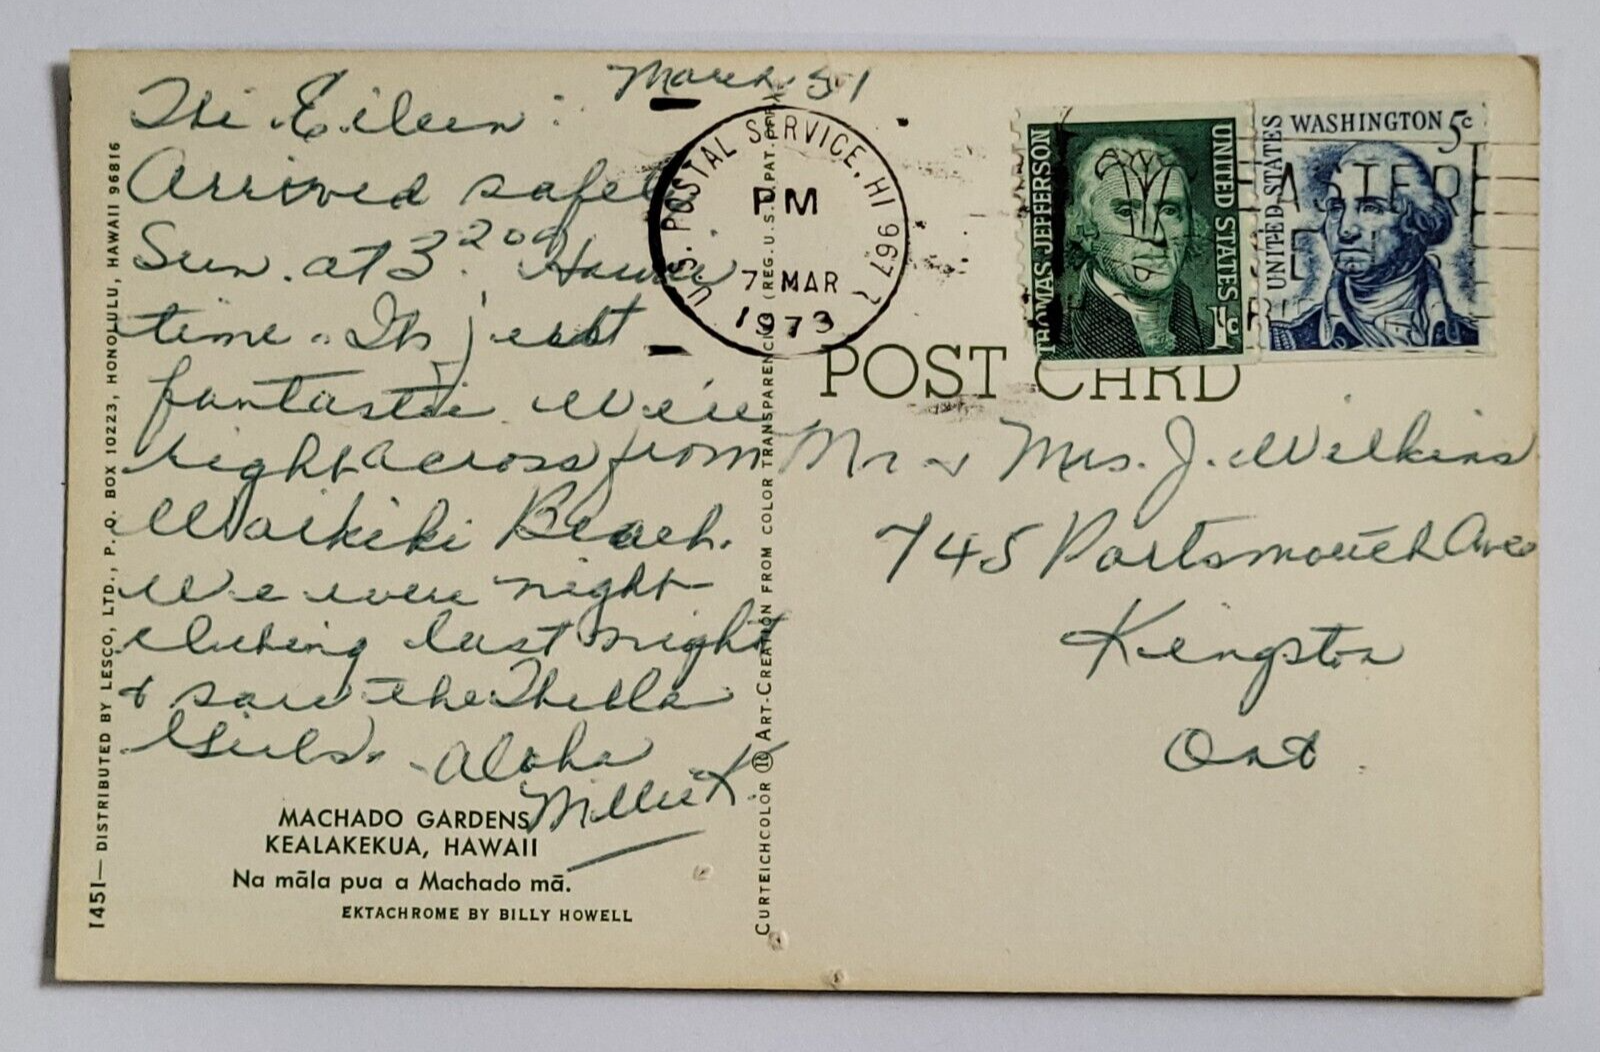 March 5/
Hi Eileen:
Arrived safely
Sun. at 3 20 Hawaii
time. Its just
fantastic We're
right across from
Waikiki Beach.
We were night-
clubing last night
& saw the
Girls. Aloha
Millie K.
MACHADO GARDENS
KEALAKEKUA, HAWAII
Na māla pua a Machado mā.
EKTACHROME BY BILLY HOWELL
1451—DISTRIBUTED BY LESCO, LTD., P. O. BOX 10223, HONOLULU, HAWAII 96816
CURTEICHCOLOR ® ART-CREATION FROM COLOR TRANSPARENCY (REG. U.S.A. PAT. OFF.)
U.S. POSTAL SERVICE, HI 967
PM
7 MAR
1973
THOMAS JEFFERSON
UNITED STATES
1c
UNITED STATES
WASHINGTON 5c
EASTER
POST CARD
Mr & Mrs. J. Wilkins
745 Portsmouth Ave
Kingston
Ont